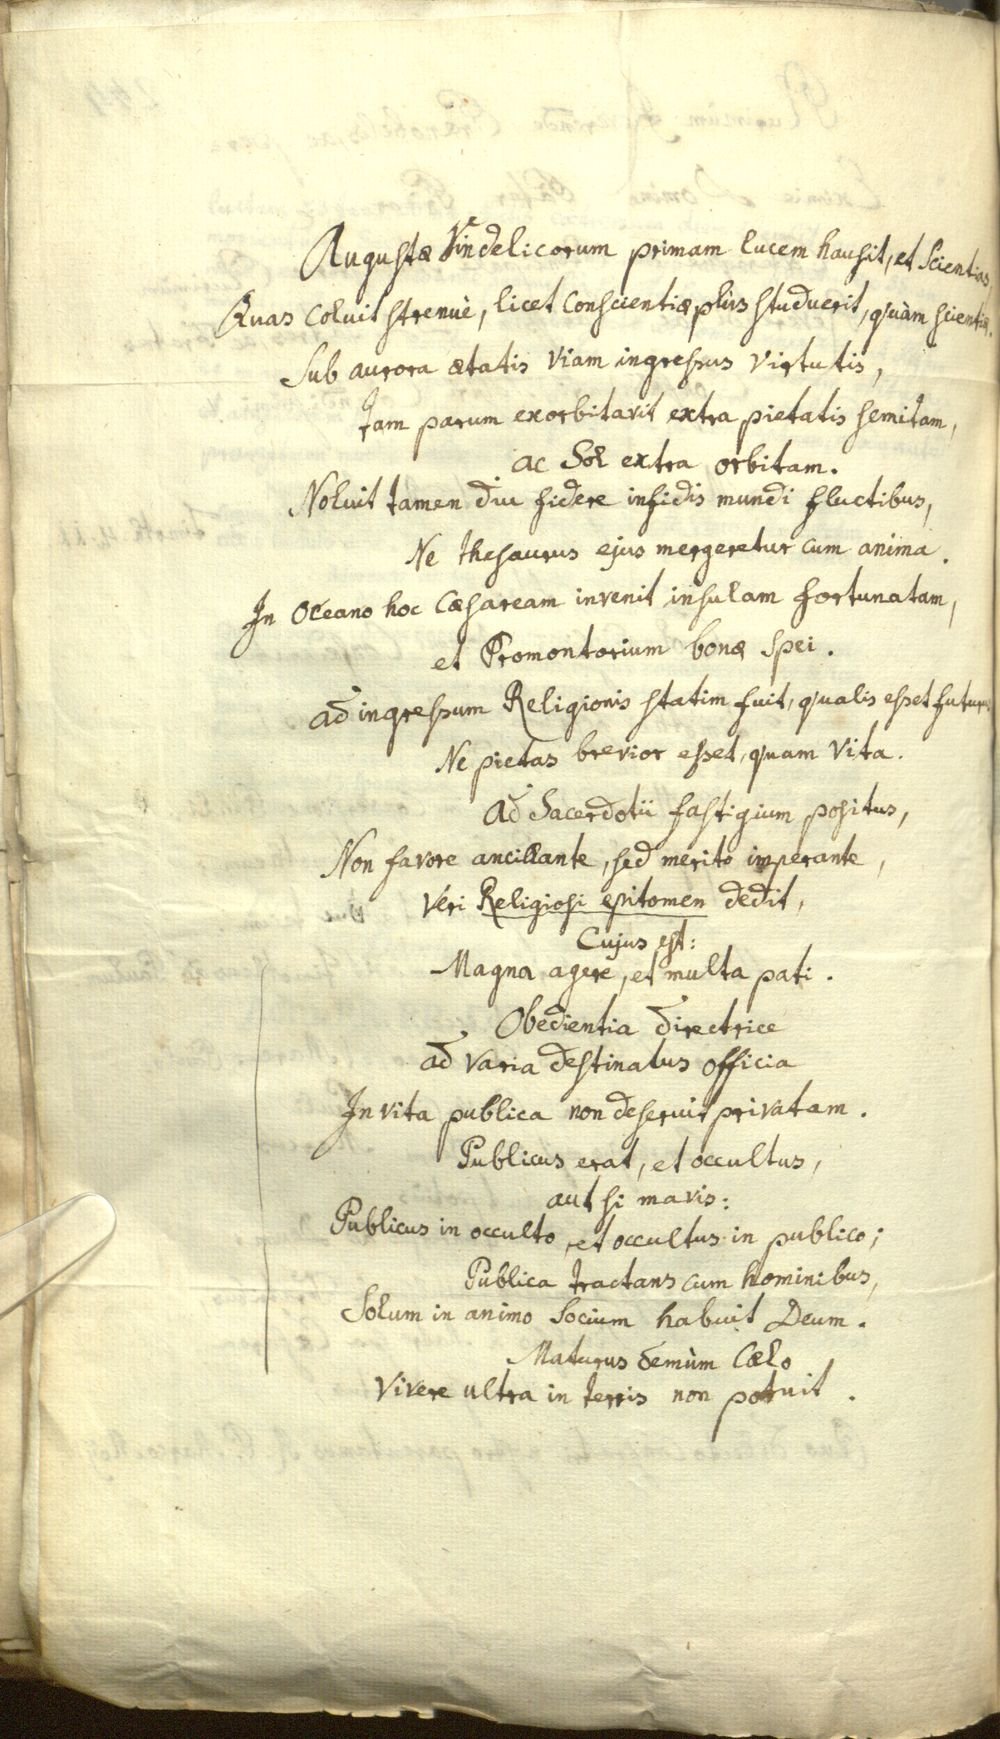 Augustæ Vindelicorum primam lucem hausit, et Scientias,
Quas coluit strenuè, licet conscientiæ plùs studuerit, quàm scientiæ.
Sub aurora ætatis viam ingressus virtutis,
Tam parum exorbitavit extra pietatis semitam,
ac Sol extra orbitam.
Noluit tamen diu fidere infidis mundi fluctibus,
Ne thesaurus ejus mergeretur cum anima.
In Oceano hoc Cæsaream invenit insulam fortunatam,
et Promontorium bonæ spei.
ad ingressum Religionis statim fuit, qualis esset futurus
Ne pietas brevior esset, quam vita.
Ad Sacerdotii fastigium positus,
Non favore ancillante, sed merito imperante,
Veri Religiosi epitomen dedit,
Cujus est:
Magna agere, et multa pati.
Obedientia directrice
ad varia destinatus officia
In vita publica non deseruit privatam.
Publicus erat, et occultus,
aut si mavis:
Publicus in occulto, et occultus in publico;
Publica tractans cum hominibus,
Solum in animo socium habuit Deum.
Maturus demùm Cælo
Vivere ultra in terris non potuit.